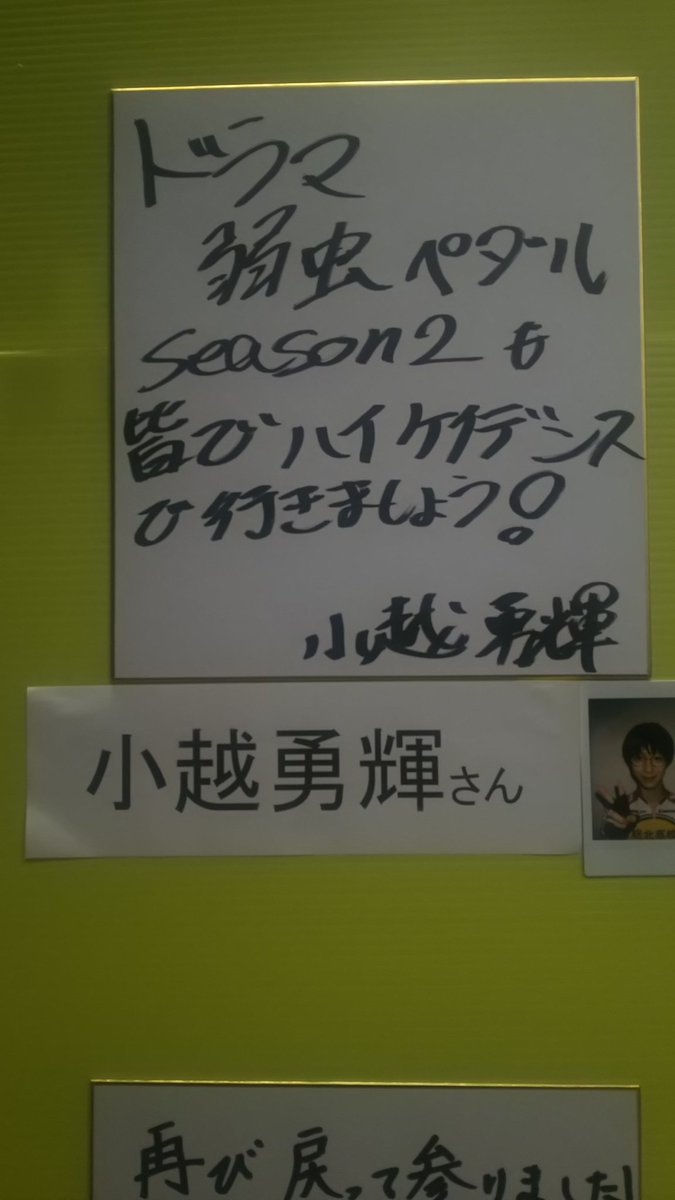 ドラマ
弱虫ペダル
season2も
皆でハイケイデンス
で行きましょう!
小越勇輝
小越勇輝さん
総北高校
再び戻って参りました!